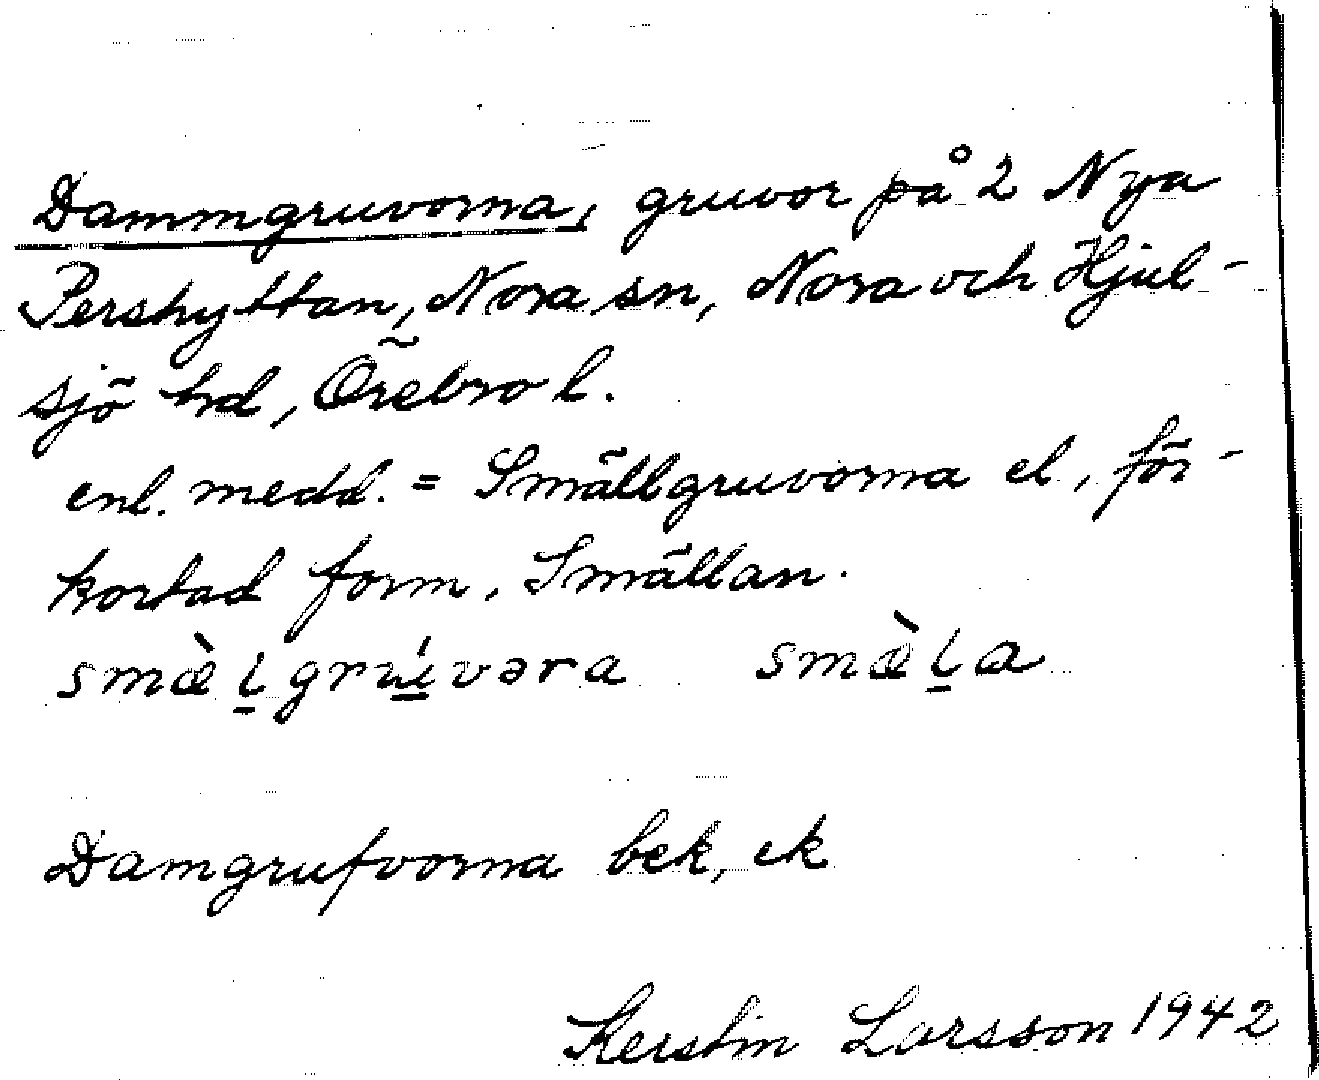 Dammgruvorna, gruvor på 2 Nya
Pershyttan, Nora sn, Nora och Hjul-
sjö hd, Örebro l.
enl. medd. = Smällgruvorna el, för-
kortad form, Smällan.
smæ̀l̠grú̠vəra smæ̀l̠a
Damgrufvorna bek, ek
Kerstin Larsson 1942